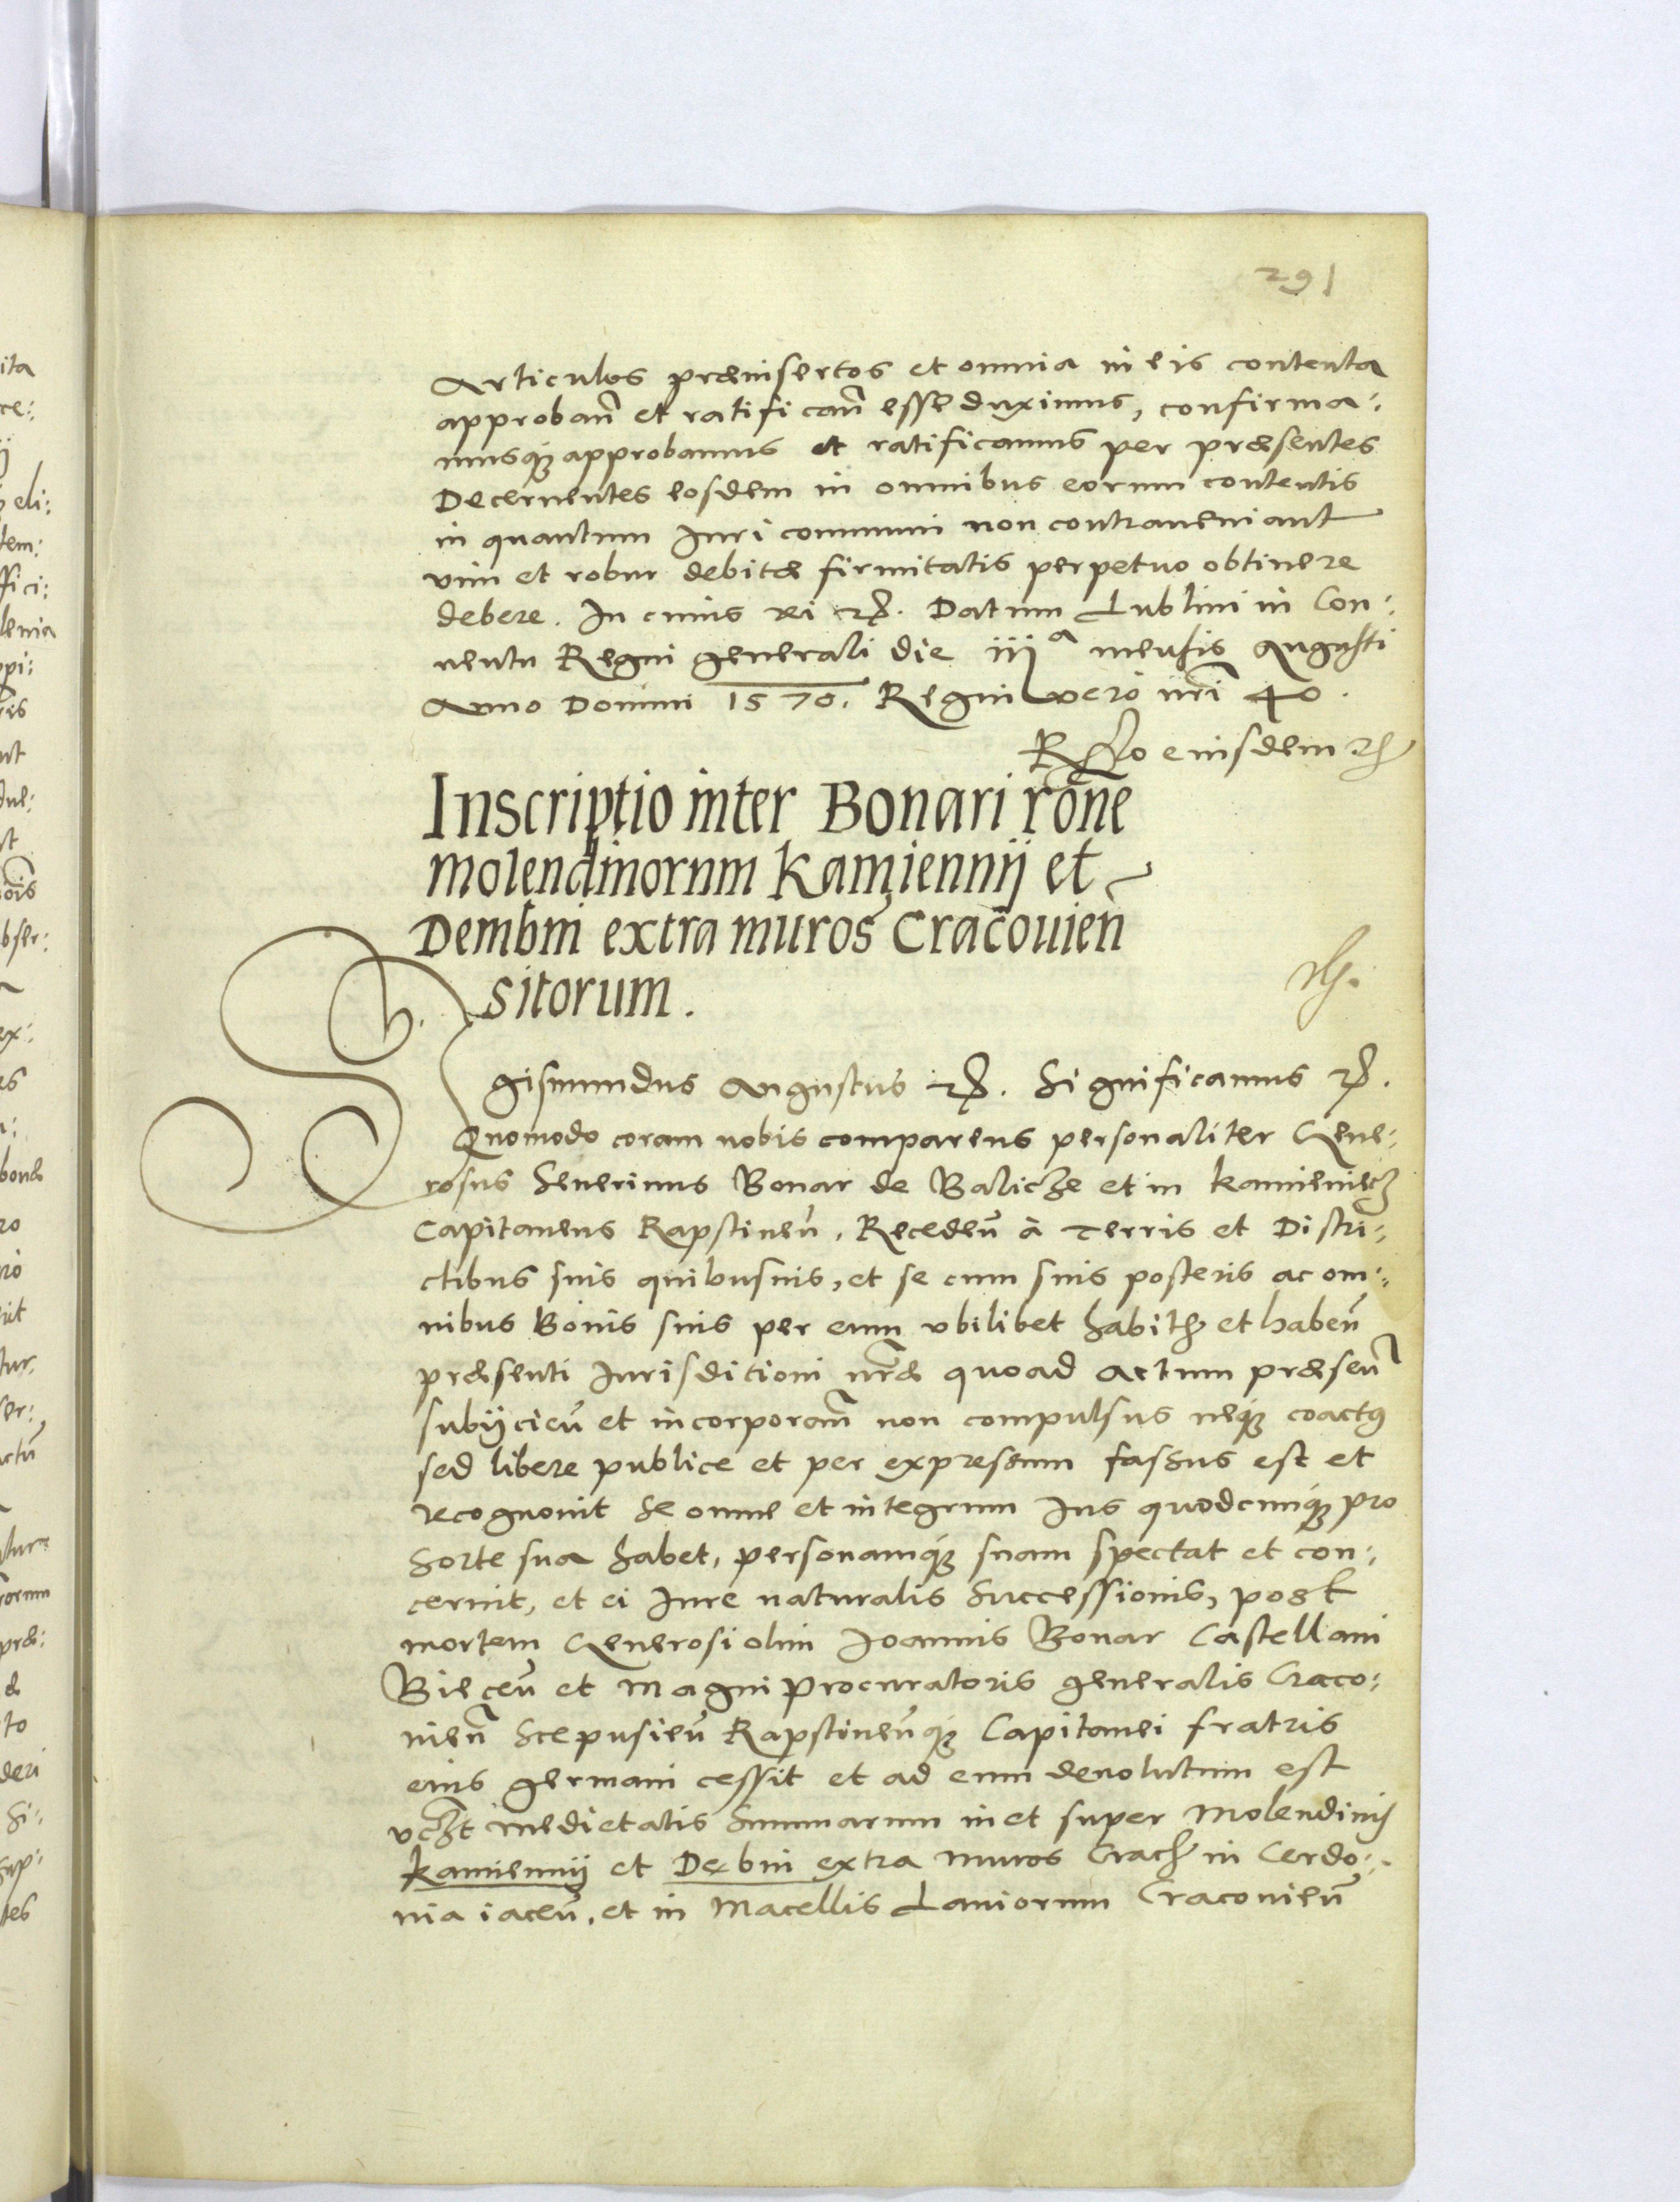 291
Articulos præinsertos et omnia in eis contenta
approban̄ et ratifican̄ esse duximus, confirma:
musqȝ approbamus et ratificamus per præsentes
Decernentes eosdem in omnibus eorum contentis
in quantum Iuri communi non contraveniant
vim et robur debitæ firmitatis perpetuo obtinere
debere. In cuius rei ꝛc. Datum Lublini in Con:
uentu Regni generali die iiij a mensis Augusti
Anno Domini 1570. Regni vero nr̃i 40.
Rlo eiusdem
Inscriptio inter Bonari rōne
molendinorum Kamiennij et
Dembni extra muros Cracouien̄
sitorum.
Sigismundus Augustus ꝛc. Significamus ꝛc.
Quomodo coram nobis comparens personaliter Gene:
rosus Seuerinus Bonar de Balicze et in Kamieniecz
Capitaneus Rapstinen̄, Receden̄ à Terris et Distri:
ctibus suis quibusuis, et se cum suis posteris ac om:
nibus Bonis suis per eum vbilibet habitꝭ et haben̄
præsenti Iurisditioni nr̃æ quoad actum præsen̄
subijcien̄ et incorporan̄ non compulsus neqȝ coactꝰ
sed libere publice et per expressum fassus est et
recognouit Se omne et integrum Ius quodcunqȝ pro
sorte sua habet, personamqȝ suam spectat et con:
cernit, et ei Iure naturalis Successionis, post
mortem Generosi olim Joannis Bonar Castellani
Biecen̄ et Magni Procuratoris generalis Craco:
uien̄ Scepusien̄ Rapstinen̄qȝ Capitanei fratris
eius germani cessit et ad eum deuolutum est
vczt medietatis Summarum in et super Molendinis
Kamiennij et Debni extra muros Cracꝭ in Cerdo:
nia iacen̄, et in Macellis Laniorum Cracouien̄